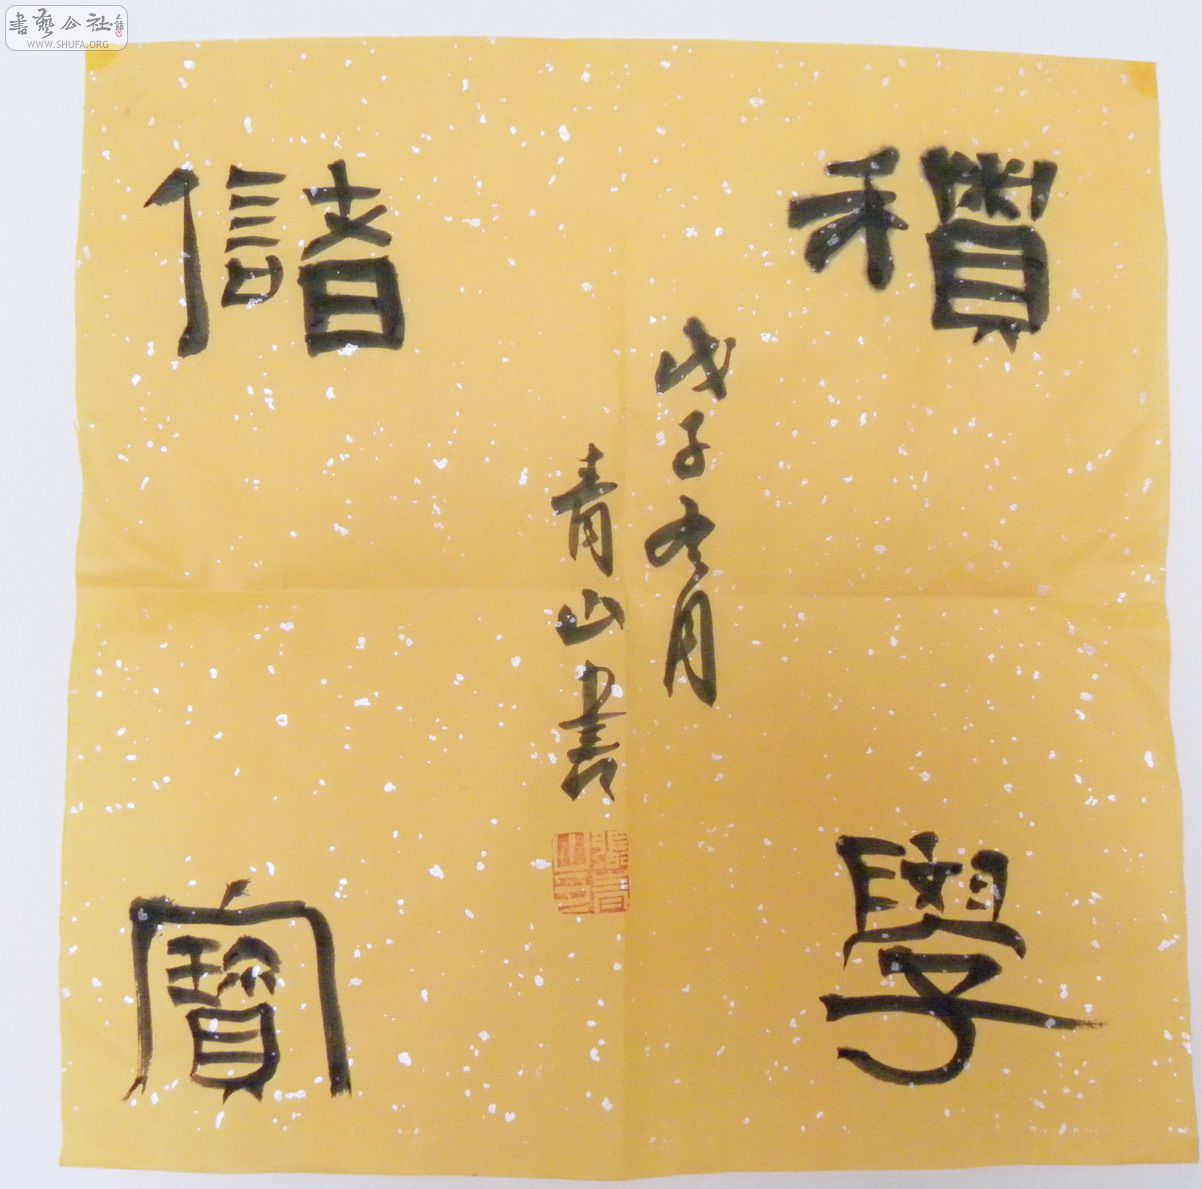 書藝公社
WWW.SHUFA.ORG
積學
儲寶
戊子冬月
青山書